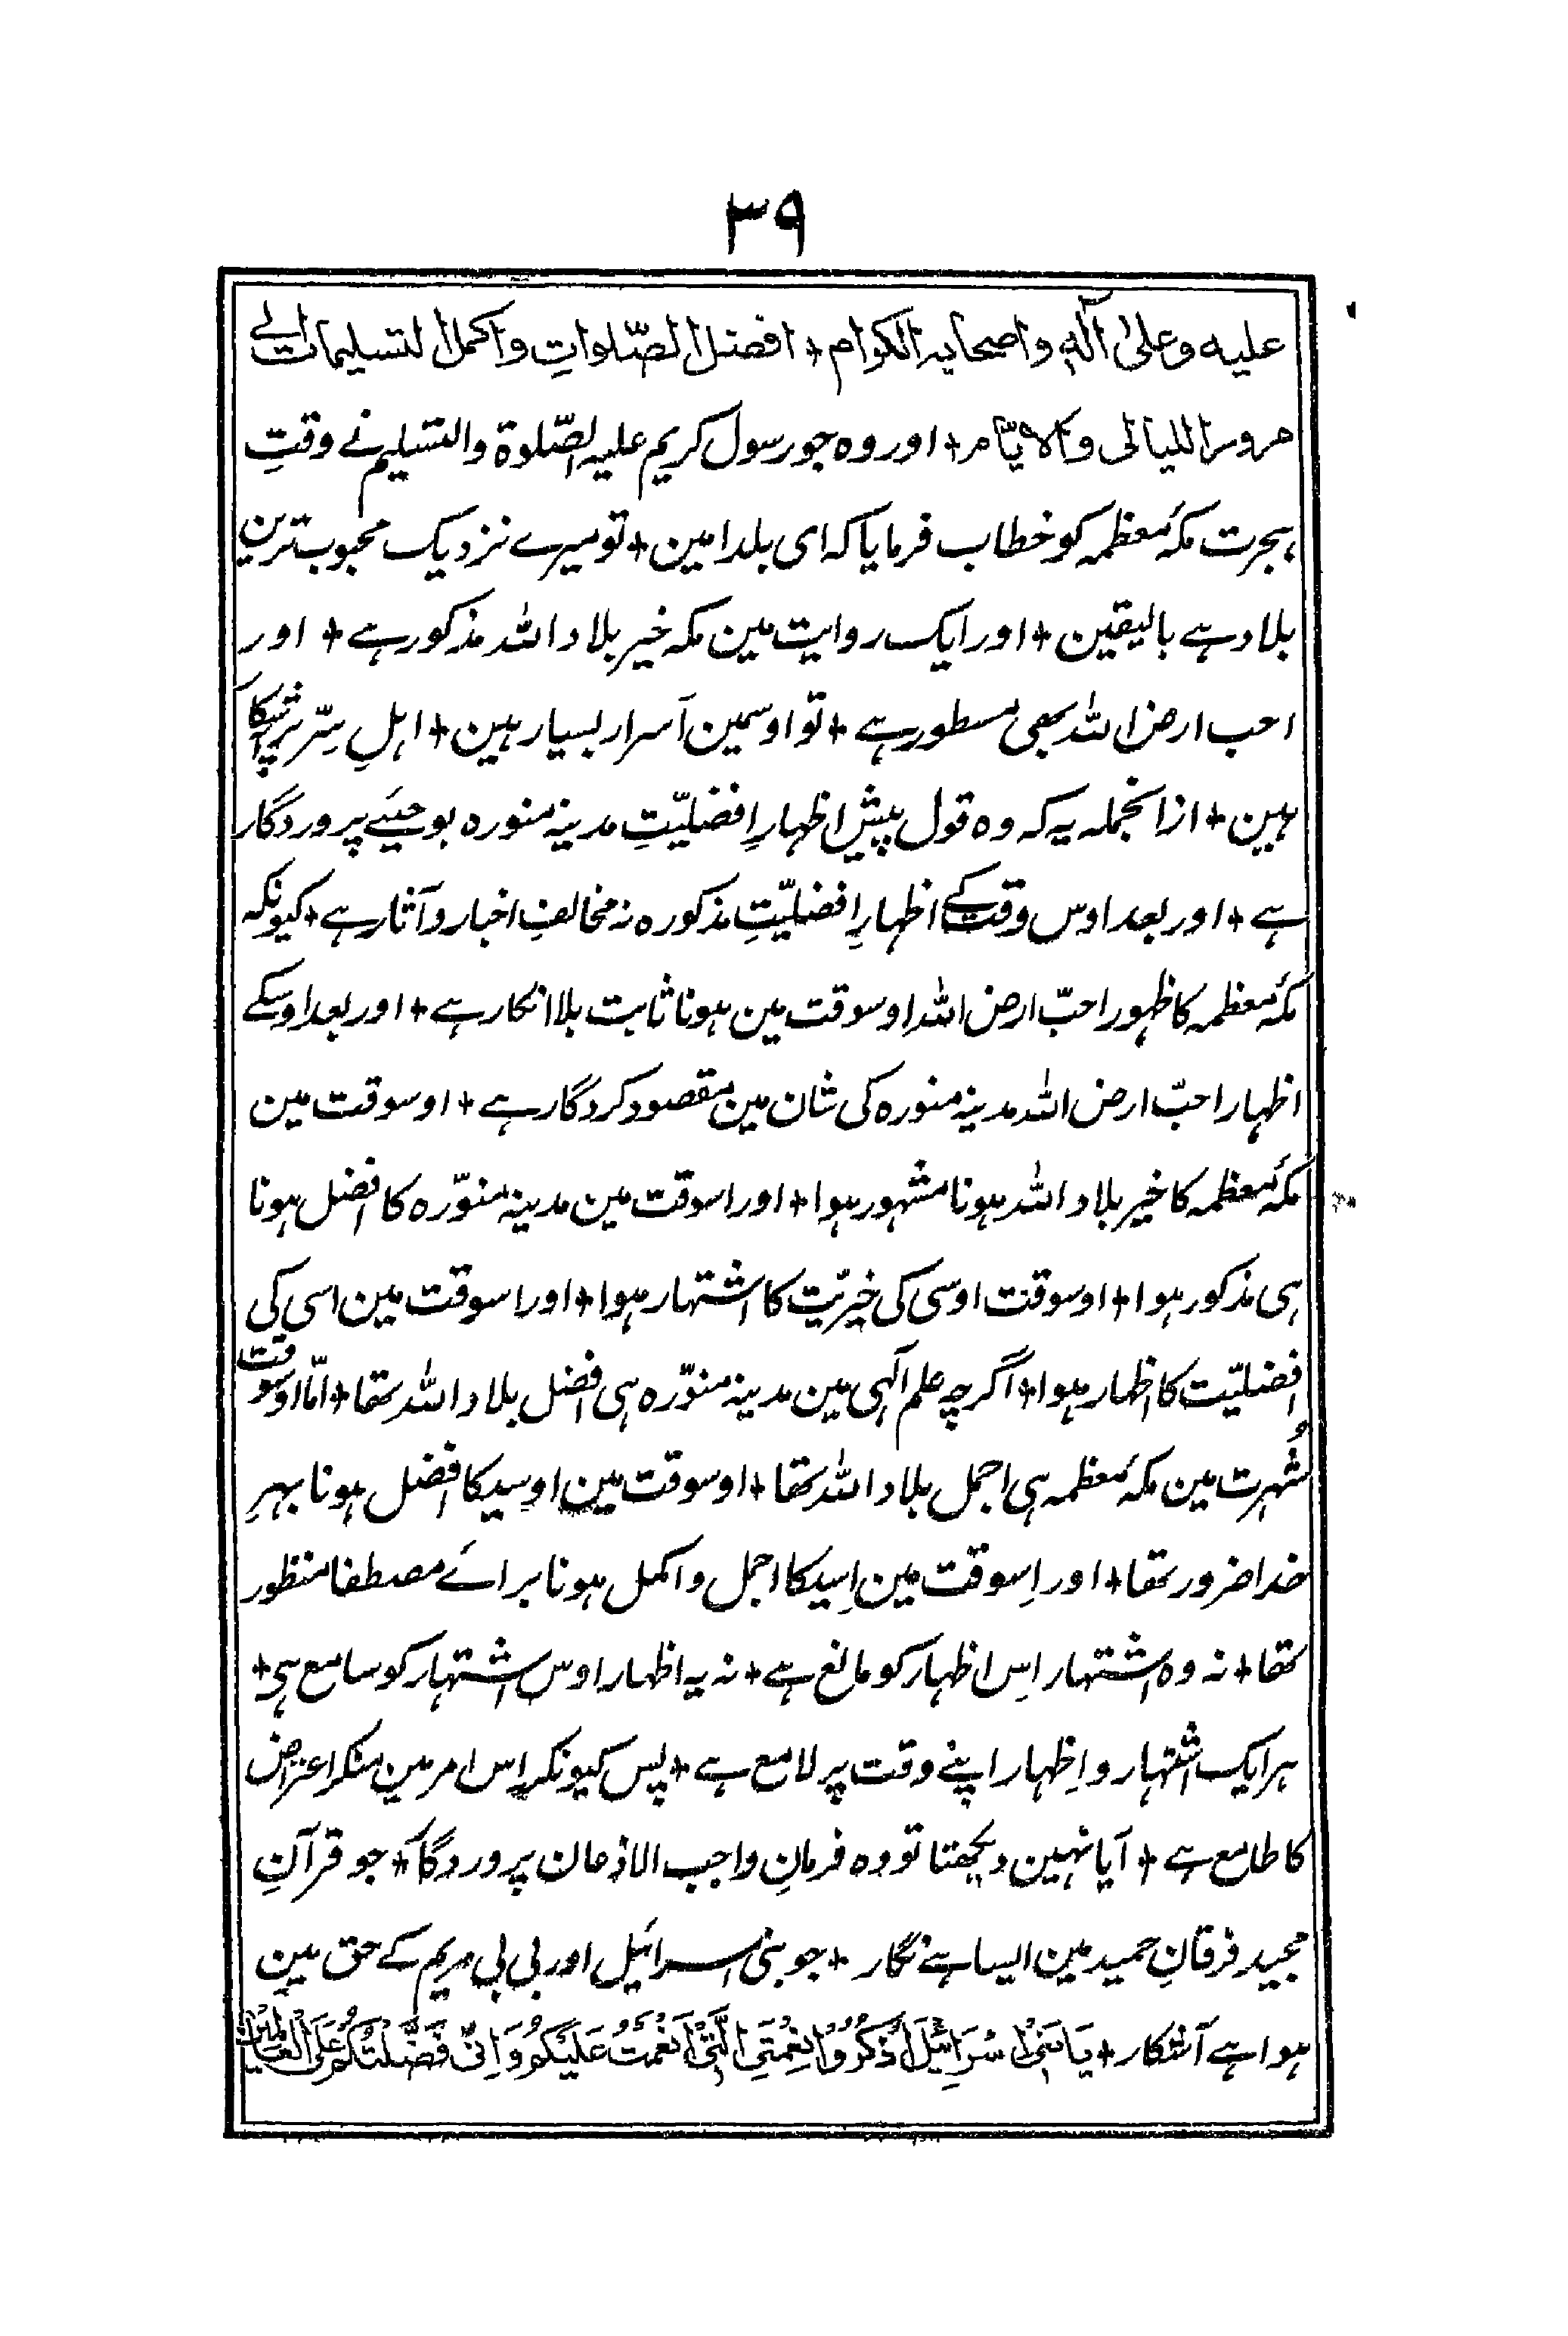 ۳۹
علیه وعلیٰ آلہٖ واصحابہ الکرام + افضل الصّلواتِ واکمل التسلیمات الے
مرور اللیالی والایّام + اور وہ جو رسول کریم علیہ الصّلوۃ والتسلیم نے وقتِ
ہجرت مکۂ معظمہ کو خطاب فرمایا کہ ای بلد امین + تو میرے نزدیک محبوب ترین
بلاد ہے بالیقین + اور ایک روایت مین مکہ خیر بلاد اللہ مذکور ہے + اور
احب ارض اللہ بھی مسطور ہے + تو اوسمین اسرار بسیار ہین + اہلِ سِرّ پر آشکا
ہین + ازانجملہ یہ کہ وہ قول پیش اظہارِ افضلیّتِ مدینہ منورہ بوحیٔے پروردگار
ہے + اور بعد اوس وقت کے اظہارِ افضلیّتِ مذکورہ نہ مخالفِ اخبار و آثار ہے + کیونکہ
مکۂ معظمہ کا ظہور احبّ ارض اللہ اوسوقت مین ہونا ثابت بلا انکار ہے + اور بعد اوسکے
اظہار احبّ ارض اللہ مدینہ منورہ کی شان مین مقصود کردگار ہے + اوسوقت مین
مکۂ معظمہ کا خیر بلاد اللہ ہونا مشہور ہوا + اور اسوقت مین مدینہ منوّرہ کا افضل ہونا
ہی مذکور ہوا + اوسوقت اوسی کی خیریّت کا اشتہار ہوا + اور اسوقت مین اسی کی
افضلیّت کا اظہار ہوا + اگرچہ علم آلہی مین مدینہ منوّرہ ہی افضل بلاد اللہ تھا + امّا اوسوقت
شُہرت مین مکۂ معظمہ ہی اجمل بلاد اللہ تھا + اوسوقت مین اوسیکا افضل ہونا بہرِ
خدا ضرور تھا + اور اِسوقت مین اِسیکا اجمل و اکمل ہونا برائے مصطفا منظور
تھا + نہ وہ اشتہار اِس اظہار کو مانع ہے + نہ یہ اظہار اوس اشتہار کو سامع ہی +
ہر ایک اشتہار و اِظہار اپنے وقت پر لامع ہے + پس کیونکر اِس امر مین منکر اعتراض
کا طامع ہے + آیا نہین دیکھتا تو وہ فرمانِ واجب الاذعان پروردگا + جو قرآنِ
مجید فرقانِ حمید مین ایسا ہے نگار + جو بنی اسرائیل اور بی بی مریم کے حق مین
ہوا ہے آشکار + یَابَنِیْ اِسْرَائِیْلَ اذْکُرُوْا نِعْمَتِیَ الَّتِیْ اَنْعَمْتُ عَلَیْکُمْ وَاَنِّیْ فَضَّلْتُکُمْ عَلَی الْعَالَمِیْنَ